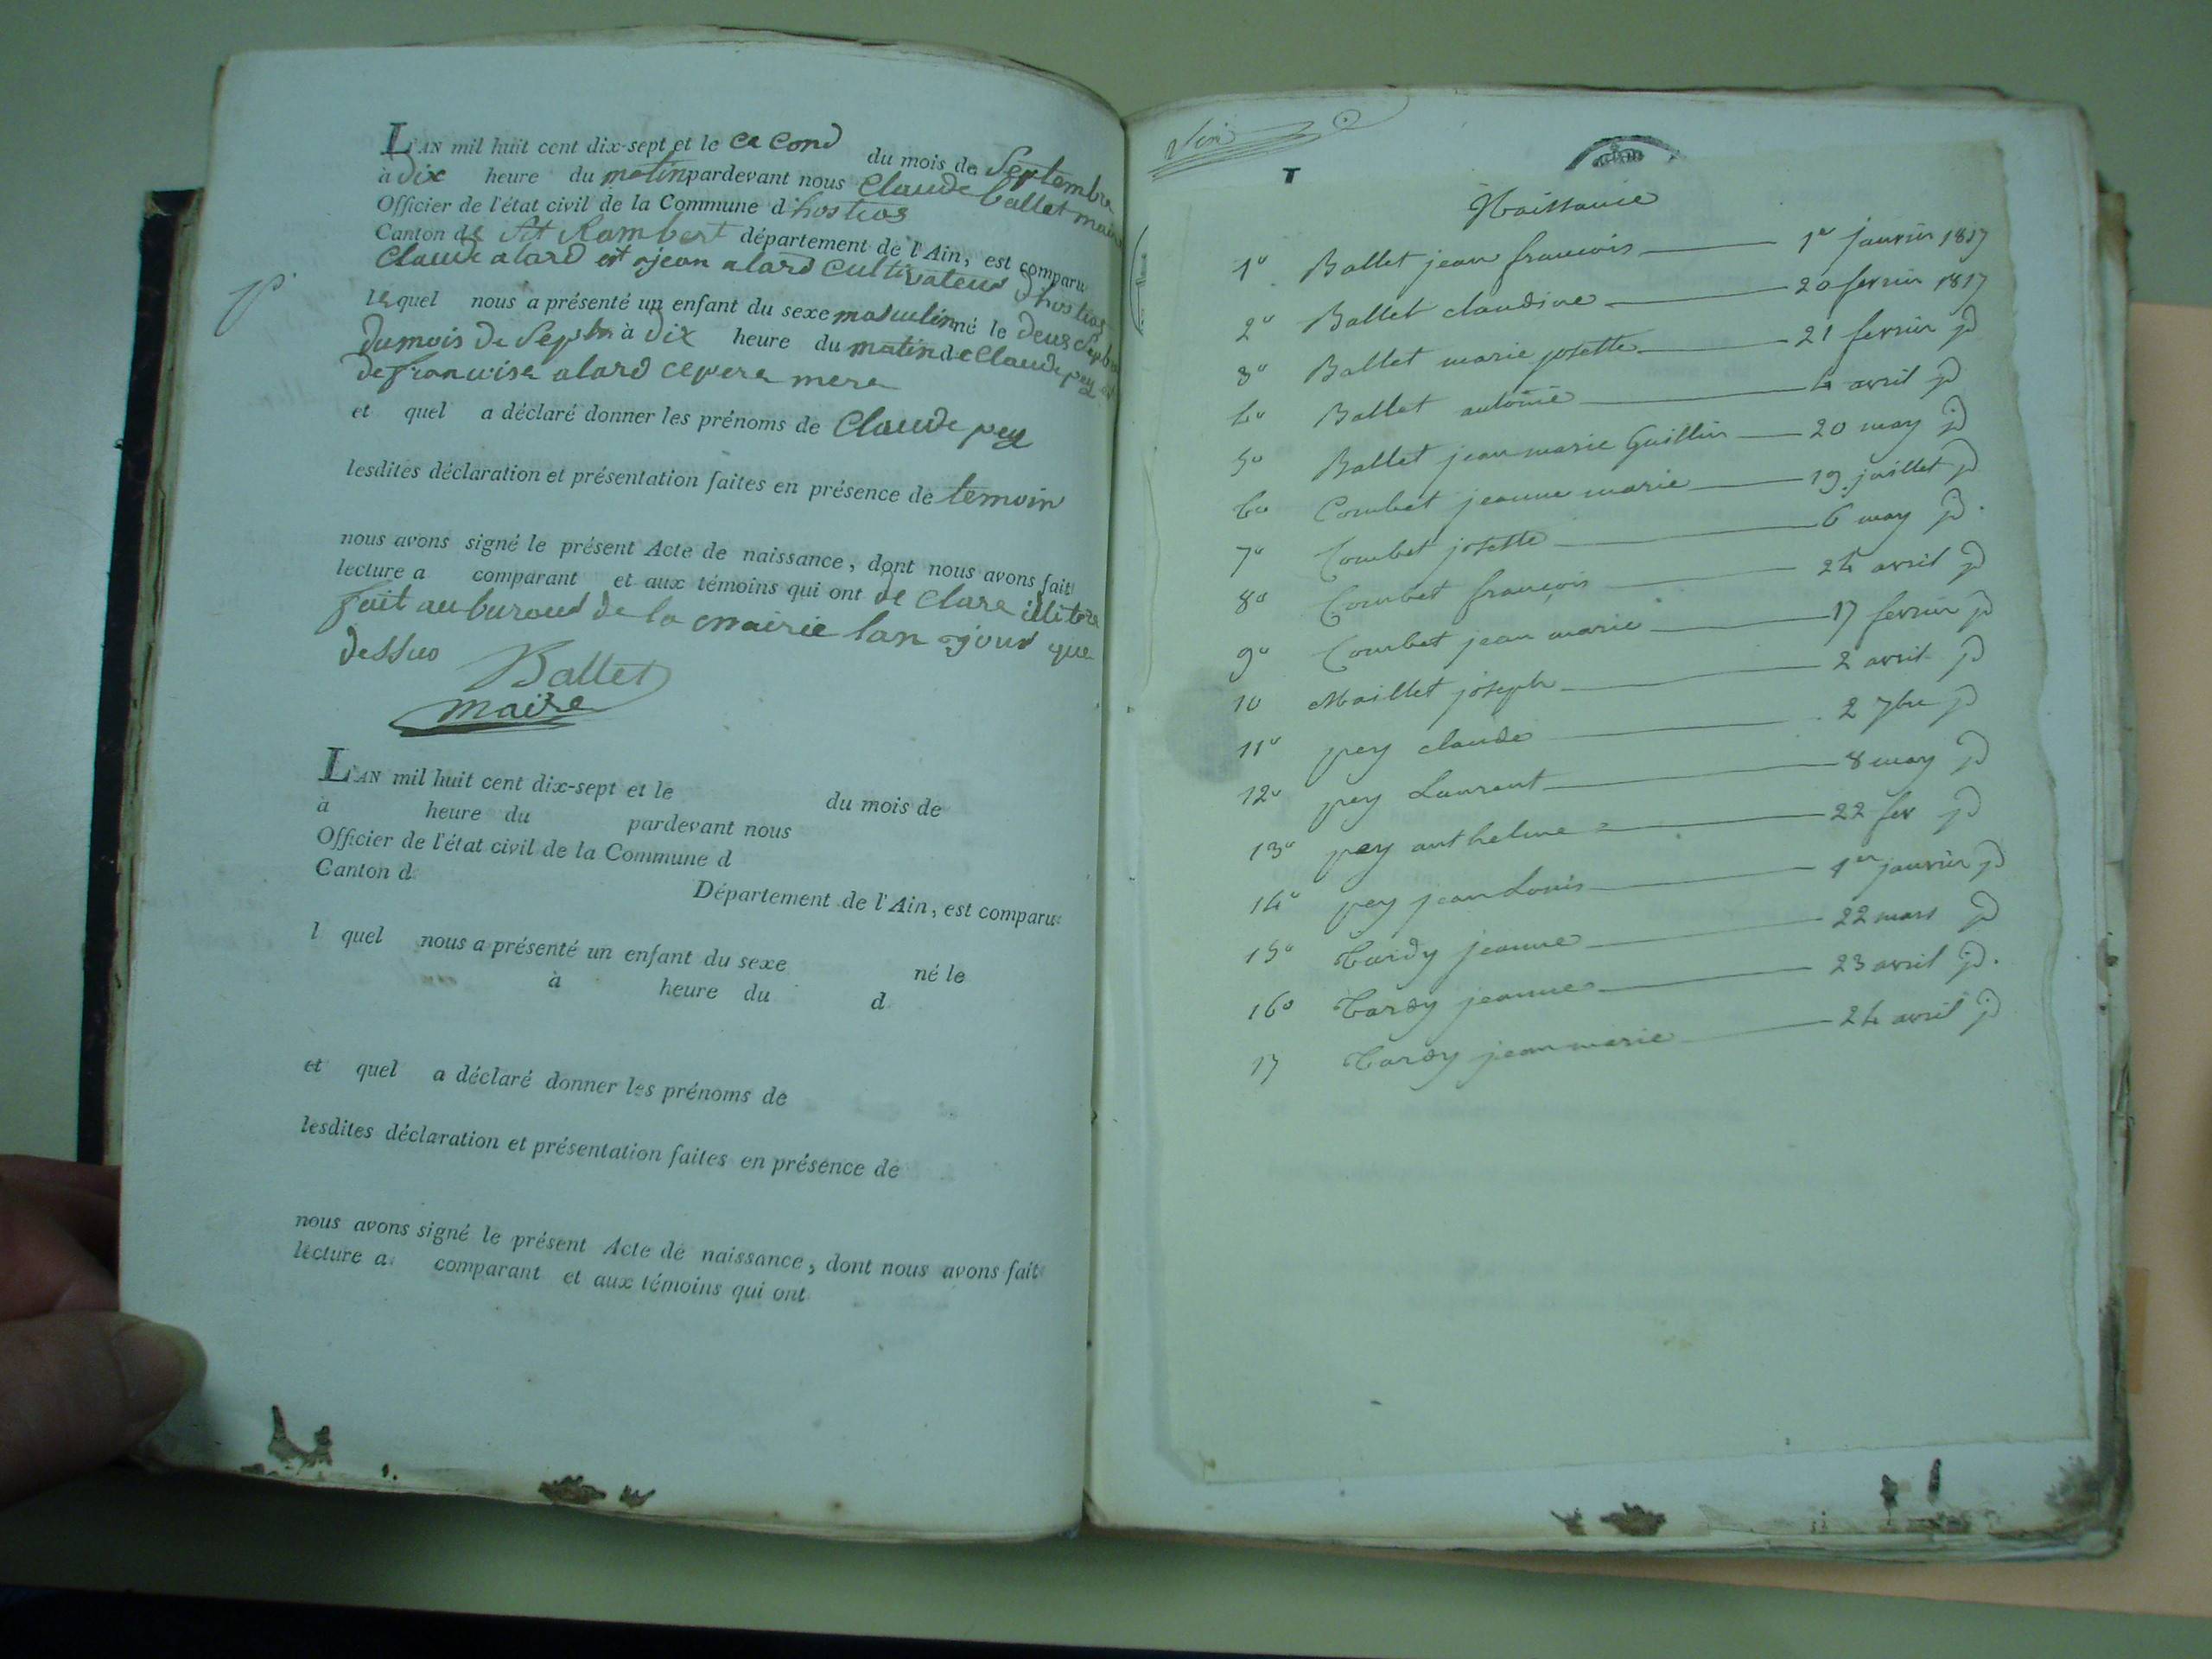 L'AN mil huit cent dix-sept et le ce cond du mois de Septembre
à Dix heure du matin pardevant nous Claude ballet maire
Officier de l'état civil de la Commune d'hostias
Canton de St Rambert département de l'Ain, est comparu
Claude alard et jean alard cultivateur d hostias
lequel nous a présenté un enfant du sexe masculin né le deux Septbre
du mois de Septbre à dix heure du matin de Claude pey et
de francoise alard ce pere mere
et quel a déclaré donner les prénoms de Claude pey
lesdites déclaration et présentation faites en présence de temoin
nous avons signé le présent Acte de naissance, dont nous avons fait
lecture a comparant et aux témoins qui ont de clare
fait au buraud de la mairie lan jour que
dessus
Ballet
maire
L'AN mil huit cent dix-sept et le du mois de
à heure du pardevant nous
Officier de l'état civil de la Commune d
Canton d Département de l'Ain, est comparu
l quel nous a présenté un enfant du sexe né le
à heure du d
et quel a déclaré donner les prénoms de
lesdites déclaration et présentation faites en présence de
nous avons signé le présent Acte de naissance, dont nous avons fait
lecture a comparant et aux témoins qui ont
T
Naissance
1° Ballet jean francois 1er janvier 1817
2° Ballet claudine 20 fevrier 1817
3° Ballet marie josette 21 fevrier jd
4° Ballet antoine 4 avril jd
5° Ballet jean marie Guillin 20 may jd
6° Combet jeanne marie 19 juillet jd
7° Combet josette 6 may jd.
8° Combet françois 24 avril jd
9° Combet jean marie 17 fevrier jd
10 Maillet joseph 2 avril jd
11° pey claude 2 7bre jd
12° pey Laurent 8 may jd
13° pey anthelme 22 fev jd
14° pey jean Louis 1er janvier jd
15° Tardy jeanne 22 mars jd
16° Tardy jeanne 23 avril jd.
17 Tardy jean marie 24 avril jd